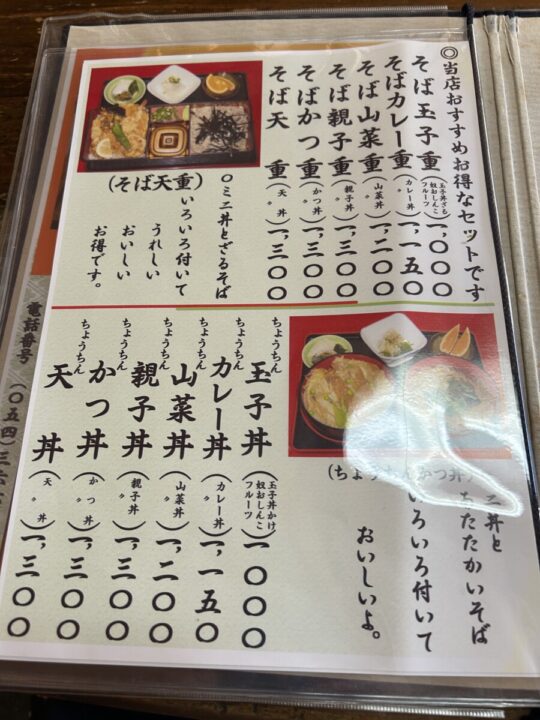 ◎当店おすすめお得なセットです
そば玉子重(玉子丼ざる 奴おしんこ フルーツ)一,〇〇〇
そばカレー重(カレー丼〃)一,一五〇
そば山菜重(山菜丼〃)一,二〇〇
そば親子重(親子丼〃)一,三〇〇
そばかつ重(かつ丼〃)一,三〇〇
そば天重(天丼〃)一,三〇〇
〇ミニ丼とざるそば
いろいろ付いて
うれしい
おいしい
お得です。
(そば天重)
(ちょうちんかつ丼)
ニ丼と
たたかいそば
いろいろ付いて
おいしいよ。
ちょうちん玉子丼(玉子丼かけ 奴おしんこ フルーツ)一,〇〇〇
ちょうちんカレー丼(カレー丼〃)一,一五〇
ちょうちん山菜丼(山菜丼〃)一,二〇〇
ちょうちん親子丼(親子丼〃)一,三〇〇
ちょうちんかつ丼(かつ丼〃)一,三〇〇
ちょうちん天丼(天丼〃)一,三〇〇
電話番号(〇五四)三